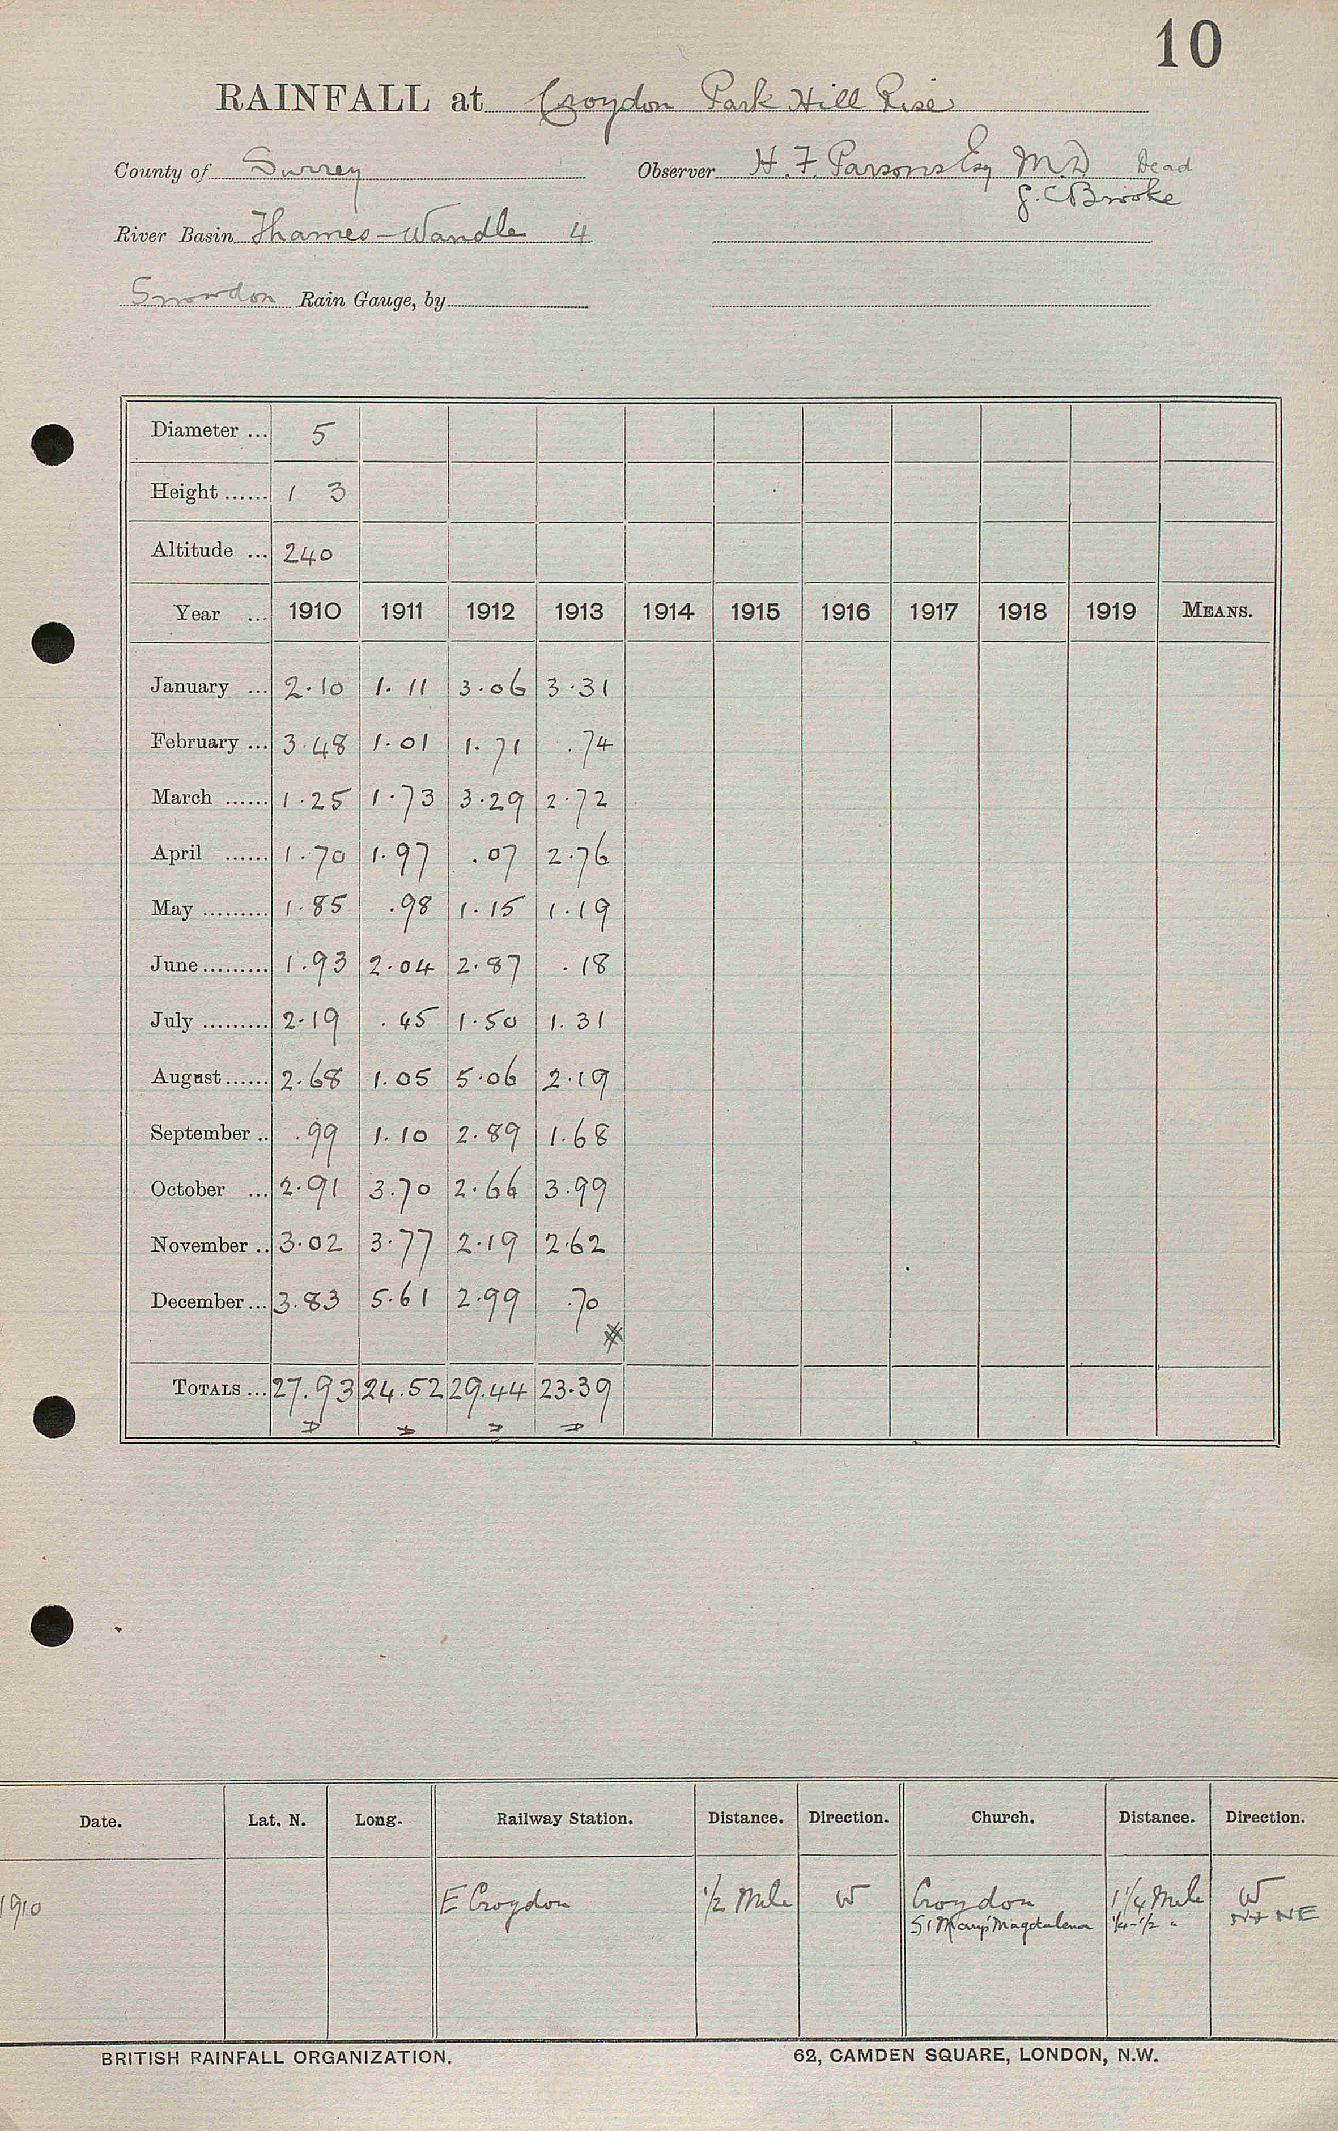 10
RAINFALL at Croydon Park Hill Rise
County of Surrey Observer H. F. Parsons Esq M.D Dead
G. C Brooke
River Basin Thames-Wandle 4
Snowdon Rain Gauge, by
Diameter ... 5
Height ...... 1 3
Altitude ... 240
Year ... 1910 1911 1912 1913 1914 1915 1916 1917 1918 1919 MEANS.
January ... 2.10 1.11 3.06 3.31
February ... 3.48 1.01 1.71 .74
March ...... 1.25 1.73 3.29 2.72
April ...... 1.70 1.97 .07 2.76
May ......... 1.85 .98 1.15 1.19
June ......... 1.93 2.04 2.87 .18
July ......... 2.19 .45 1.50 1.31
August ...... 2.68 1.05 5.06 2.19
September .. .99 1.10 2.89 1.68
October ... 2.91 3.70 2.66 3.99
November .. 3.02 3.77 2.19 2.62
December ... 3.83 5.61 2.99 .70
TOTALS ... 27.93 24.52 29.44 23.39
Date. Lat. N. Long. Railway Station. Distance. Direction. Church. Distance. Direction.
1910 E Croydon 1/2 Mile W Croydon 1 1/4 Mile W
St Mary Magdalene 1/4-1/2 " NE
BRITISH RAINFALL ORGANIZATION. 62, CAMDEN SQUARE, LONDON, N.W.